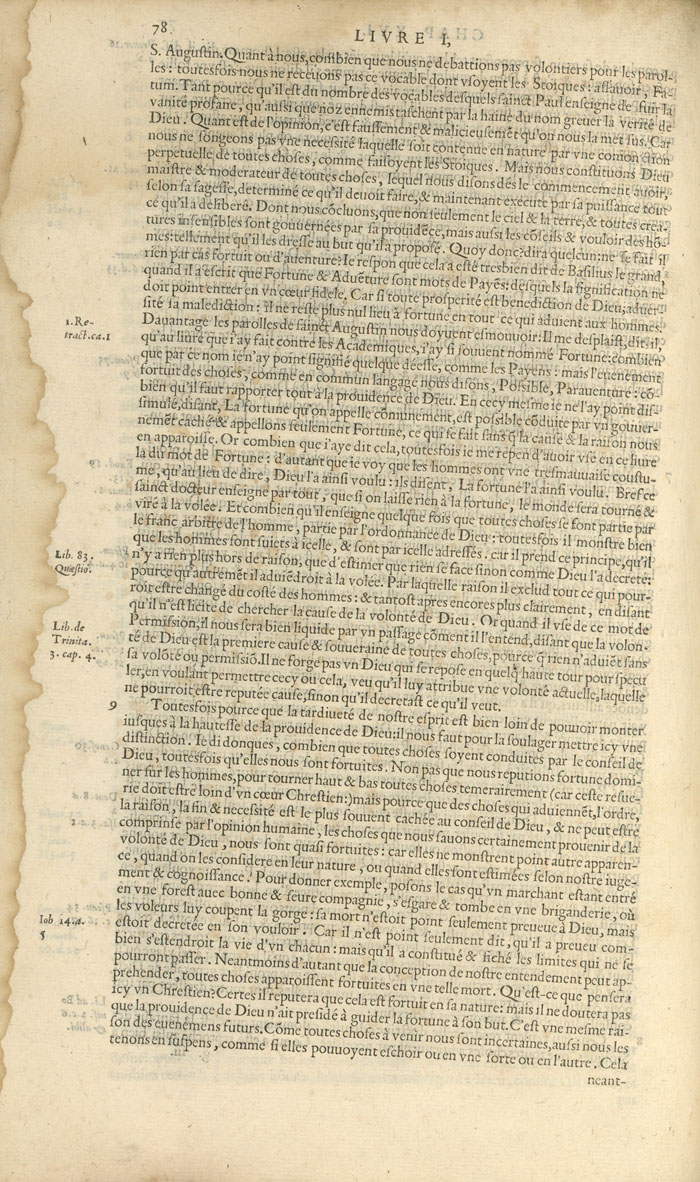 78
LIVRE I,
S. Augustin. Quant à nous, combien que nous ne debattions pas volontiers pour les parol-
les: toutesfois nous ne receuons pas ce vocable dont vsoyent les Stoiques: assauoir, Fa-
tum. Tant pource qu'il est du nombre des vocables desquels sainct Paul enseigne de fuir la
vanité profane, qu'aussi que noz ennemis taschent par la haine du nom greuer la verité de
Dieu. Quant est de l'opinion, c'est faussement & malicieusemēt qu'on nous la met sus. Car
nous ne songeons pas vne necessité laquelle soit contenue en nature par vne conionction
perpetuelle de toutes choses, comme faisoyent les Stoiques. Mais nous constituons Dieu
maistre & moderateur de toutes choses, lequel nous disons dés le commencement auoir,
selon sa sagesse, determiné ce qu'il deuoit faire, & maintenant execute par sa puissance tout
ce qu'il a deliberé. Dont nous cōcluons, que non seulement le ciel & la terre, & toutes crea-
tures insensibles sont gouuernées par sa prouidēce, mais aussi les cōseils & vouloir des hō-
mes: tellement qu'il les dresse au but qu'il a proposé. Quoy donc? dira quelcun: ne se fait il
rien par cas fortuit ou d'auenture? Ie respon que cela a esté tresbien dit de Basilius le grand,
quand il a escrit que Fortune & Aduēture sont mots de Payēs: desquels la signification ne
doit point entrer en vn cœur fidele. Car si toute prosperité est benediction de Dieu, aduer-
sité sa malediction: il ne reste plus nul lieu à fortune en tout ce qui aduient aux hommes.
Dauantage les parolles de sainct Augustin nous doyuent esmouuoir: Il me desplaist, dit-il,
1. Re-
tract. ca. 1
qu'au liure que i'ay fait contre les Academiques, i'ay si souuent nommé Fortune: combien
que par ce nom ie n'ay point signifié quelque déesse, comme les Payens: mais l'euenement
fortuit des choses, comme en commun langage nous disons, Possible, Parauenture: cō-
bien qu'il faut rapporter tout à la prouidence de Dieu. En cecy mesme ie ne l'ay point dis-
simulé, disant, La fortune qu'on appelle cōmunement, est possible cōduite par vn gouuer-
nemēt caché: & appellons seulement Fortune, ce qui se fait sans q̄ la cause & la raison nous
en apparoisse. Or combien que i'aye dit cela, toutesfois ie me repen d'auoir vsé en ce liure
la du mot de Fortune: d'autant que ie voy que les hommes ont vne tresmauuaise coustu-
me, qu'au lieu de dire, Dieu l'a ainsi voulu: ils disent, La fortune l'a ainsi voulu. Bref ce
sainct docteur enseigne par tout, que si on laisse rien à la fortune, le monde sera tourné &
viré à la volée. Et combien qu'il enseigne quelque fois que toutes choses se font partie par
le franc arbitre de l'homme, partie par l'ordonnance de Dieu: toutesfois il monstre bien
que les hommes sont suiets à icelle, & sont par icelle adressés. car il prend ce principe, qu'il
Lib. 83.
Quæstio.
n'y a rien plus hors de raison, que d'estimer que rien se face sinon comme Dieu l'a decreté:
pource qu'autremēt il aduiēdroit à la volée. Par laquelle raison il exclud tout ce qui pour-
roit estre changé du costé des hommes: & tantost apres encores plus clairement, en disant
qu'il n'est licite de chercher la cause de la volonté de Dieu. Or quand il vse de ce mot de
Lib. de
Trinita.
3. cap. 4.
Permission, il nous sera bien liquide par vn passage cōment il l'entend, disant que la volon-
té de Dieu est la premiere cause & souueraine de toutes choses, pource q̄ rien n'aduiēt sans
sa volōté ou permissiō. Il ne forge pas vn Dieu qui se repose en quelq̄ haute tour pour specu
ler, en voulant permettre cecy ou cela, veu qu'il luy attribue vne volonté actuelle, laquelle
ne pourroit estre reputée cause, sinon qu'il decretast ce qu'il veut.
9 Toutesfois pource que la tardiueté de nostre esprit est bien loin de pouuoir monter
iusques à la hautesse de la prouidence de Dieu: il nous faut pour la soulager mettre icy vne
distinction. Ie di donques, combien que toutes choses soyent conduites par le conseil de
Dieu, toutesfois qu'elles nous sont fortuites. Non pas que nous reputions fortune domi-
ner sur les hommes, pour tourner haut & bas toutes choses temerairement (car ceste resue-
rie doit estre loin d'vn cœur Chrestien:) mais pource que des choses qui aduiennēt, l'ordre,
la raison, la fin & necessité est le plus souuent cachée au conseil de Dieu, & ne peut estre
comprinse par l'opinion humaine, les choses que nous sauons certainement prouenir de la
volonté de Dieu, nous sont quasi fortuites: car elles ne monstrent point autre apparen-
ce, quand on les considere en leur nature, ou quand elles sont estimées selon nostre iuge-
ment & cognoissance. Pour donner exemple, posons le cas qu'vn marchant estant entré
en vne forest auec bonne & seure compagnie, s'esgare & tombe en vne briganderie, où
les voleurs luy coupent la gorge: sa mort n'estoit point seulement preueuë à Dieu, mais
Iob 14. a.
5
estoit decretée en son vouloir. Car il n'est point seulement dit, qu'il a preueu com-
bien s'estendroit la vie d'vn chacun: mais qu'il a constitué & fiché les limites qui ne se
pourront passer. Neantmoins d'autant que la conception de nostre entendement peut ap-
prehender, toutes choses apparoissent fortuites en vne telle mort. Qu'est-ce que pensera
icy vn Chrestien? Certes il reputera que cela est fortuit en sa nature: mais il ne doutera pas
que la prouidence de Dieu n'ait presidé à guider la fortune à son but. C'est vne mesme rai-
son des euenemens futurs. Cōme toutes choses à venir nous sont incertaines, aussi nous les
tenons en suspens, comme si elles pouuoyent eschoir ou en vne sorte ou en l'autre. Cela
neant-